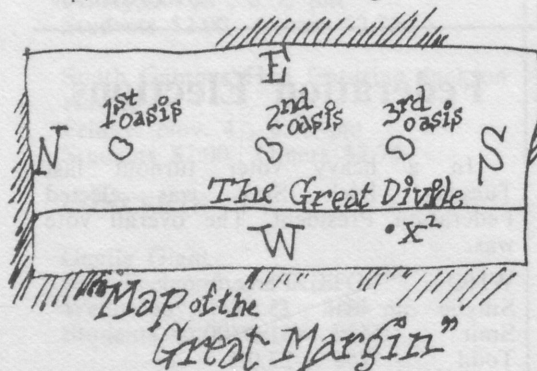 E
1st oasis
2nd oasis
3rd oasis
N
S
The Great Divide
W
• X²
"Map of the
Great Margin"